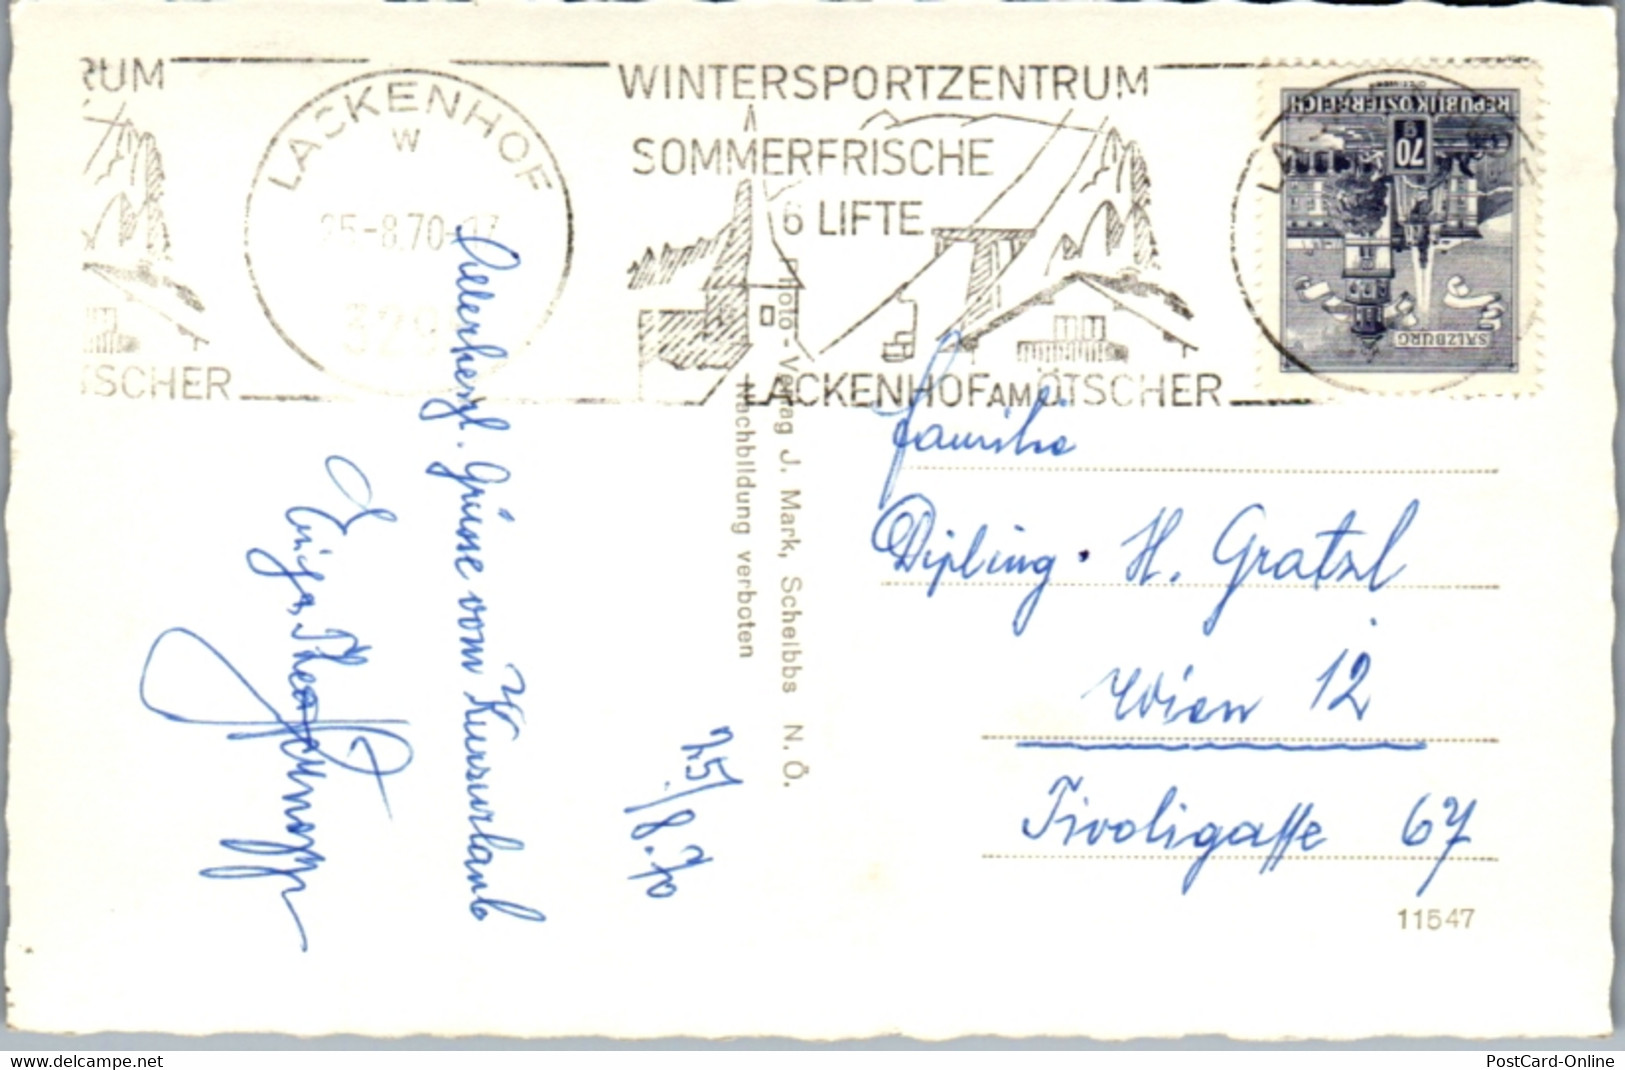 RUM
TSCHER
LACKENHOF
W
25-8.70-17
329
WINTERSPORTZENTRUM
SOMMERFRISCHE
6 LIFTE
LACKENHOF AM ÖTSCHER
REPUBLIK ÖSTERREICH
70 g
SALZBURG
Allerherzl. Grüsse vom Kurzurlaub
25./8.70
Photo-Verlag J. Mark, Scheibbs N.Ö.
Nachbildung verboten
Familie
Dipling. H. Gratzl
Wien 12
Tivoligasse 67
11547
delcampe.net
PostCard-Online